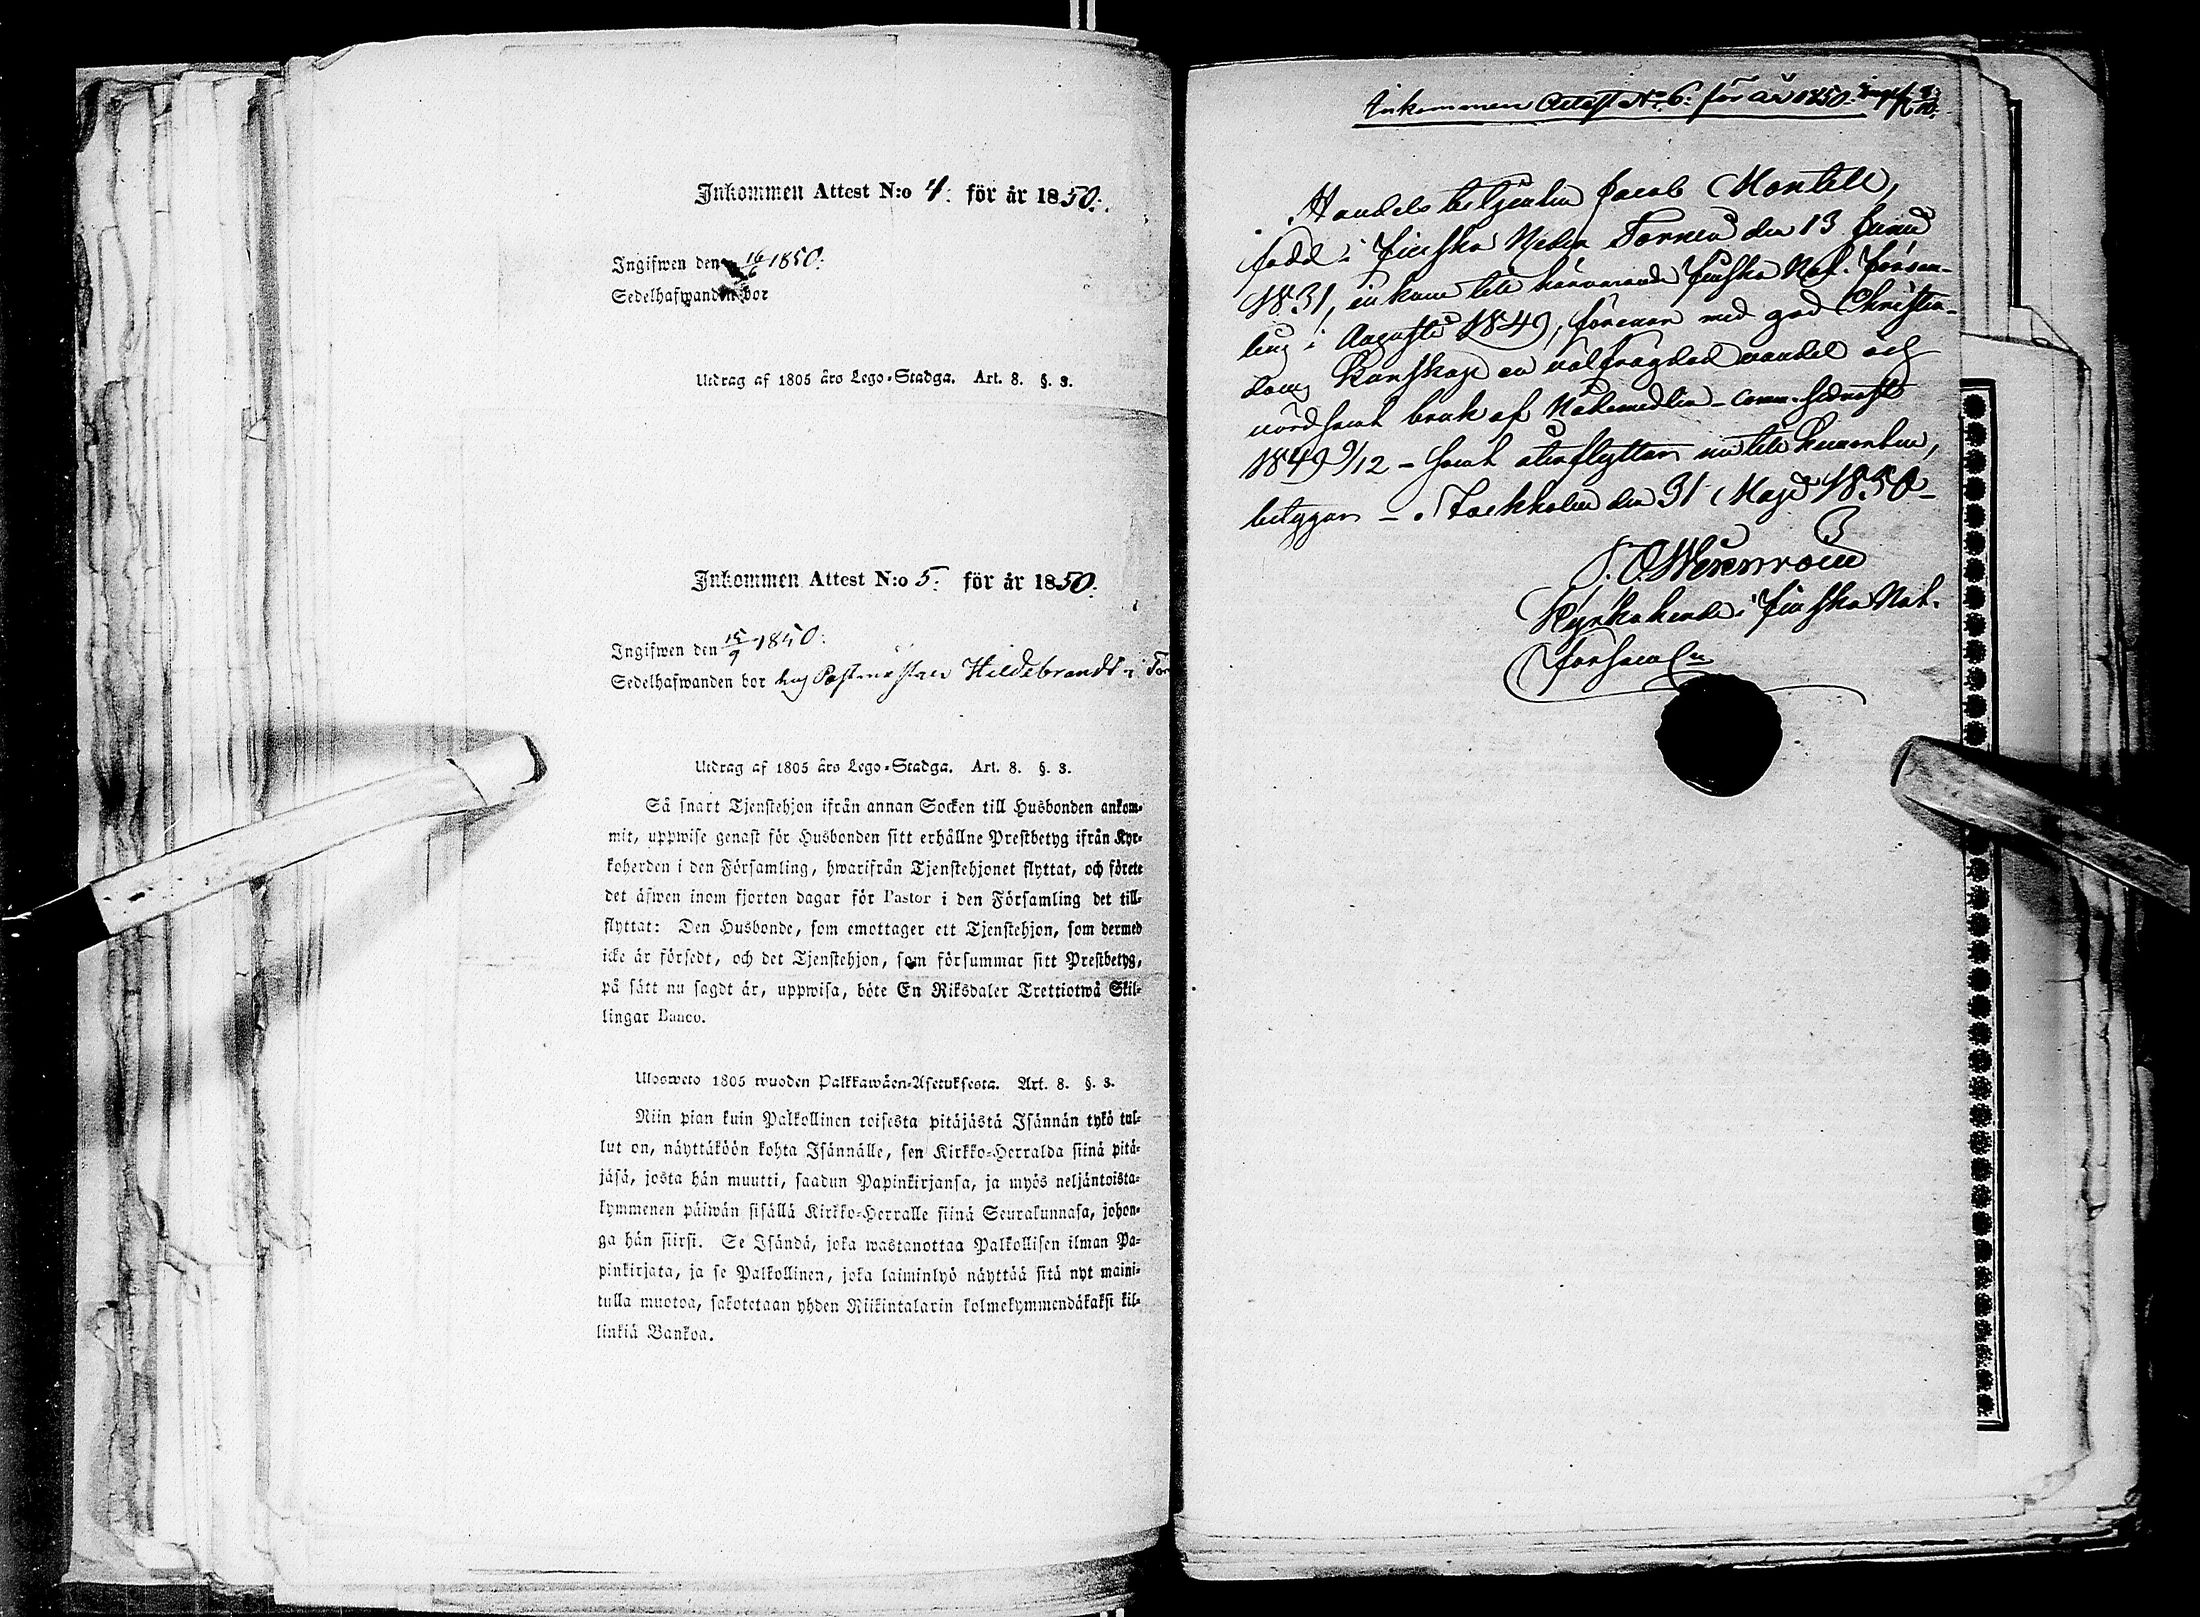 Inkommen Attest N:o 4. för år 1850.
Ingifwen den 16/6 1850.
Sedelhafwanden bor
Utdrag af 1805 års Lego-Stadga. Art. 8. §. 3.
Inkommen Attest N:o 5. för år 1850.
Ingifwen den 15/9 1850.
Sedelhafwanden bor hos Postmästare Hildebrandt i Tor
Utdrag af 1805 års Lego-Stadga. Art. 8. §. 3.
Så snart Tjenstehjon ifrån annan Socken till Husbonden ankom-
mit, uppwise genast för Husbonden sitt erhållne Prestbetyg ifrån Kyr-
koherden i den Församling, hwarifrån Tjenstehjonet flyttat, och förete
det äfwen inom fjorton dagar för Pastor i den Församling det till-
flyttat: Den Husbonde, som emottager ett Tjenstehjon, som dermed
icke är försedt, och det Tjenstehjon, som försummar sitt Prestbetyg,
på sätt nu sagdt är, uppwisa, böte En Riksdaler Trettiotwå Skil-
lingar Banco.
Ulosweto 1805 wuoden Palkkawäen-Asetuksesta. Art. 8. §. 3.
Niin pian kuin Palkollinen toisesta pitäjästä Isännän tykö tul-
lut on, näyttäköön kohta Isännälle, sen Kirkko-Herralda siinä pitä-
jäsä, josta hän muutti, saadun Papinkirjansa, ja myös neljäntoista-
kymmenen päiwän sisällä Kirkko-Herralle siinä Seurakunnasa, johon-
ga hän siirsi. Se Isändä, joka wastanottaa Palkollisen ilman Pa-
pinkirjata, ja se Palkollinen, joka laiminlyö näyttää sitä nyt maini-
tulla muotoa, sakotetaan yhden Riikintalarin kolmekymmendäkaksi kil-
linkiä Bankoa.
Inkommen Attest No. 6. för år 1850.
Handels betjenten Jacob Montell,
född i finska Neder Torneå den 13 Junii
1831, inkom till härvarande finska Nat. försam-
ling i Augusti 1849, förenar med god Christen-
doms Kunskap en välfrägdad vandel och
vördsamt bruk af Nådemedlen - comm. sednast
1849 9/12 - samt återflyttar nu till hemorten,
betygar - Stockholm den 31 Maji 1850 -
Kyrkoherde i finska Nat.
församl:n